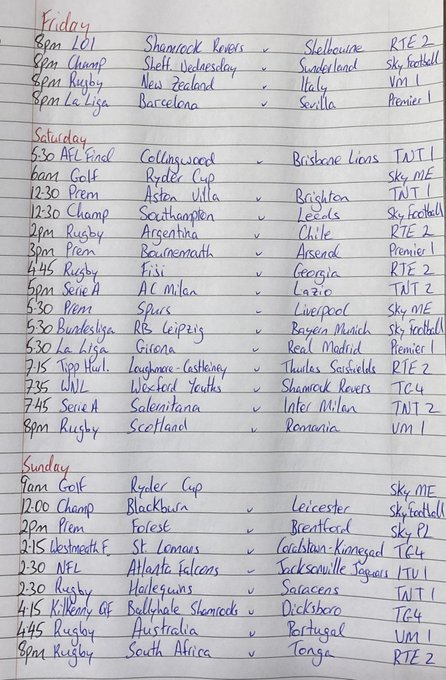 Friday
8pm LOI Shamrock Rovers v Shelbourne RTE 2
8pm Champ Sheff. Wednesday v Sunderland Sky Football
8pm Rugby New Zealand v Italy VM 1
8pm La Liga Barcelona v Sevilla Premier 1
Saturday
5:30 AFL Final Collingwood v Brisbane Lions TNT 1
6am Golf Ryder Cup Sky ME
12:30 Prem Aston Villa v Brighton TNT 1
12:30 Champ Southampton v Leeds Sky Football
2pm Rugby Argentina v Chile RTE 2
3pm Prem Bournemouth v Arsenal Premier 1
4:45 Rugby Fiji v Georgia RTE 2
5pm Serie A AC Milan v Lazio TNT 2
5:30 Prem Spurs v Liverpool Sky ME
5:30 Bundesliga RB Leipzig v Bayern Munich Sky Football
5:30 La Liga Girona v Real Madrid Premier 1
7:15 Tipp Hurl. Loughmore-Castleiney v Thurles Sarsfields RTE 2
7:35 WNL Wexford Youths v Shamrock Rovers TG4
7:45 Serie A Salernitana v Inter Milan TNT 2
8pm Rugby Scotland v Romania VM 1
Sunday
9am Golf Ryder Cup Sky ME
12:00 Champ Blackburn v Leicester Sky Football
2pm Prem Forest v Brentford Sky PL
2:15 Westmeath F. St. Lomans v Coralstown-Kinnegad TG4
2:30 NFL Atlanta Falcons v Jacksonville Jaguars ITV 1
2:30 Rugby Harlequins v Saracens TNT 1
4:15 Kilkenny QF Ballyhale Shamrocks v Dicksboro TG4
4:45 Rugby Australia v Portugal VM 1
8pm Rugby South Africa v Tonga RTE 2